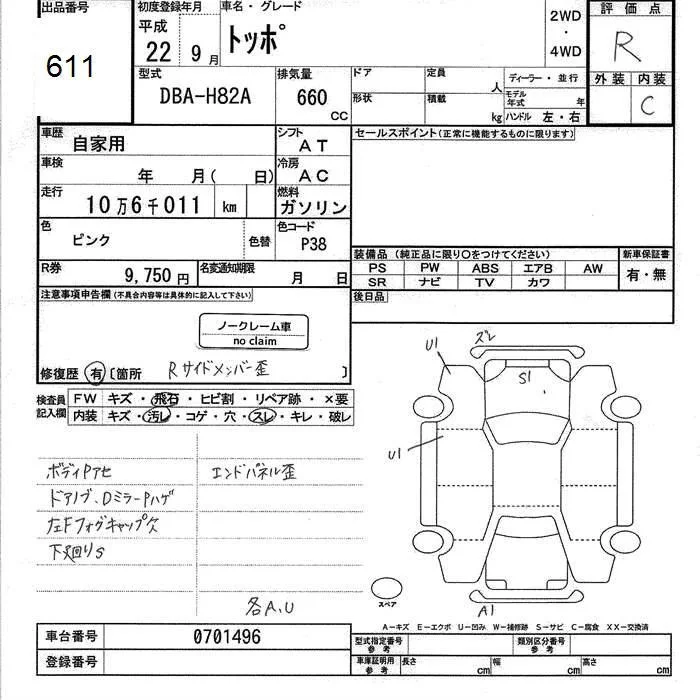 出品番号
611
初度登録年月
平成
22 9 月
車名・グレード
トッポ
2WD
・
4WD
評価点
R
外装 内装
C
型式
DBA-H82A
排気量
660
CC
ドア
定員
人
形状
積載
kg
ディーラー・並行
モデル年式
年
ハンドル 左・右
車歴
自家用
シフト
AT
セールスポイント(正常に機能するものに限ります)
車検
年 月( 日)
冷房
AC
走行
10万6千011 km
燃料
ガソリン
色
ピンク
色替
色コード
P38
装備品 (純正品に限り○をつけてください)
PS PW ABS エアB AW
SR ナビ TV カワ
新車保証書
有・無
R券
9,750 円
名変通知期限
月 日
後日品
注意事項申告欄(不具合内容等は具体的に記入して下さい)
ノークレーム車
no claim
修復歴 有 〔箇所 Rサイドメンバー歪 〕
検査員記入欄
FW キズ・飛石・ヒビ割・リペア跡・×要
内装 キズ・汚レ・コゲ・穴・スレ・キレ・破レ
ボディPアセ
エンドパネル歪
ドアノブ、DミラーPハゲ
左Fフォグキャップ欠
下廻りS
各A,U
U1
ズレ
S1
U1
A1
スペア
A－キズ E－エクボ U－凹み W－補修跡 S－サビ C－腐食 XX－交換済
車台番号
0701496
登録番号
型式指定番号
参考
類別区分番号
参考
車庫証明用
参考
長さ cm 幅 cm 高さ cm